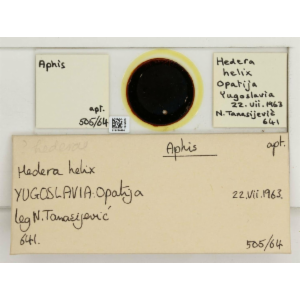 Aphis
apt.
505/64
Hedera
helix
Opatija
Yugoslavia
22.vii.1963
N.Tanasijević
641
Aphis
apt.
Hedera helix
YUGOSLAVIA:Opatija
22.vii.1963.
leg N.Tanasijević
641.
505/64